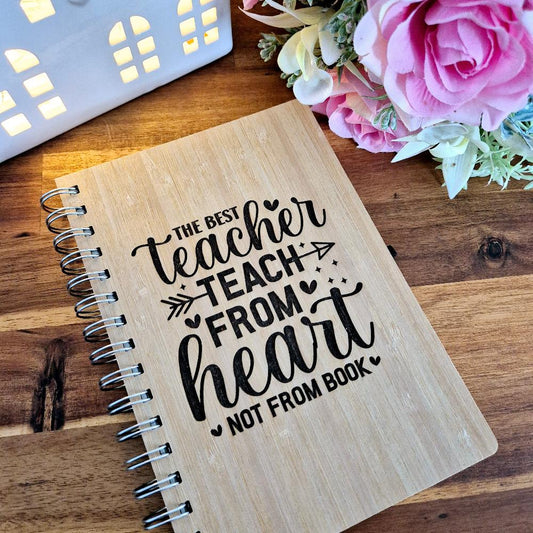 THE BEST
teacher
TEACH
FROM
heart
NOT FROM BOOK